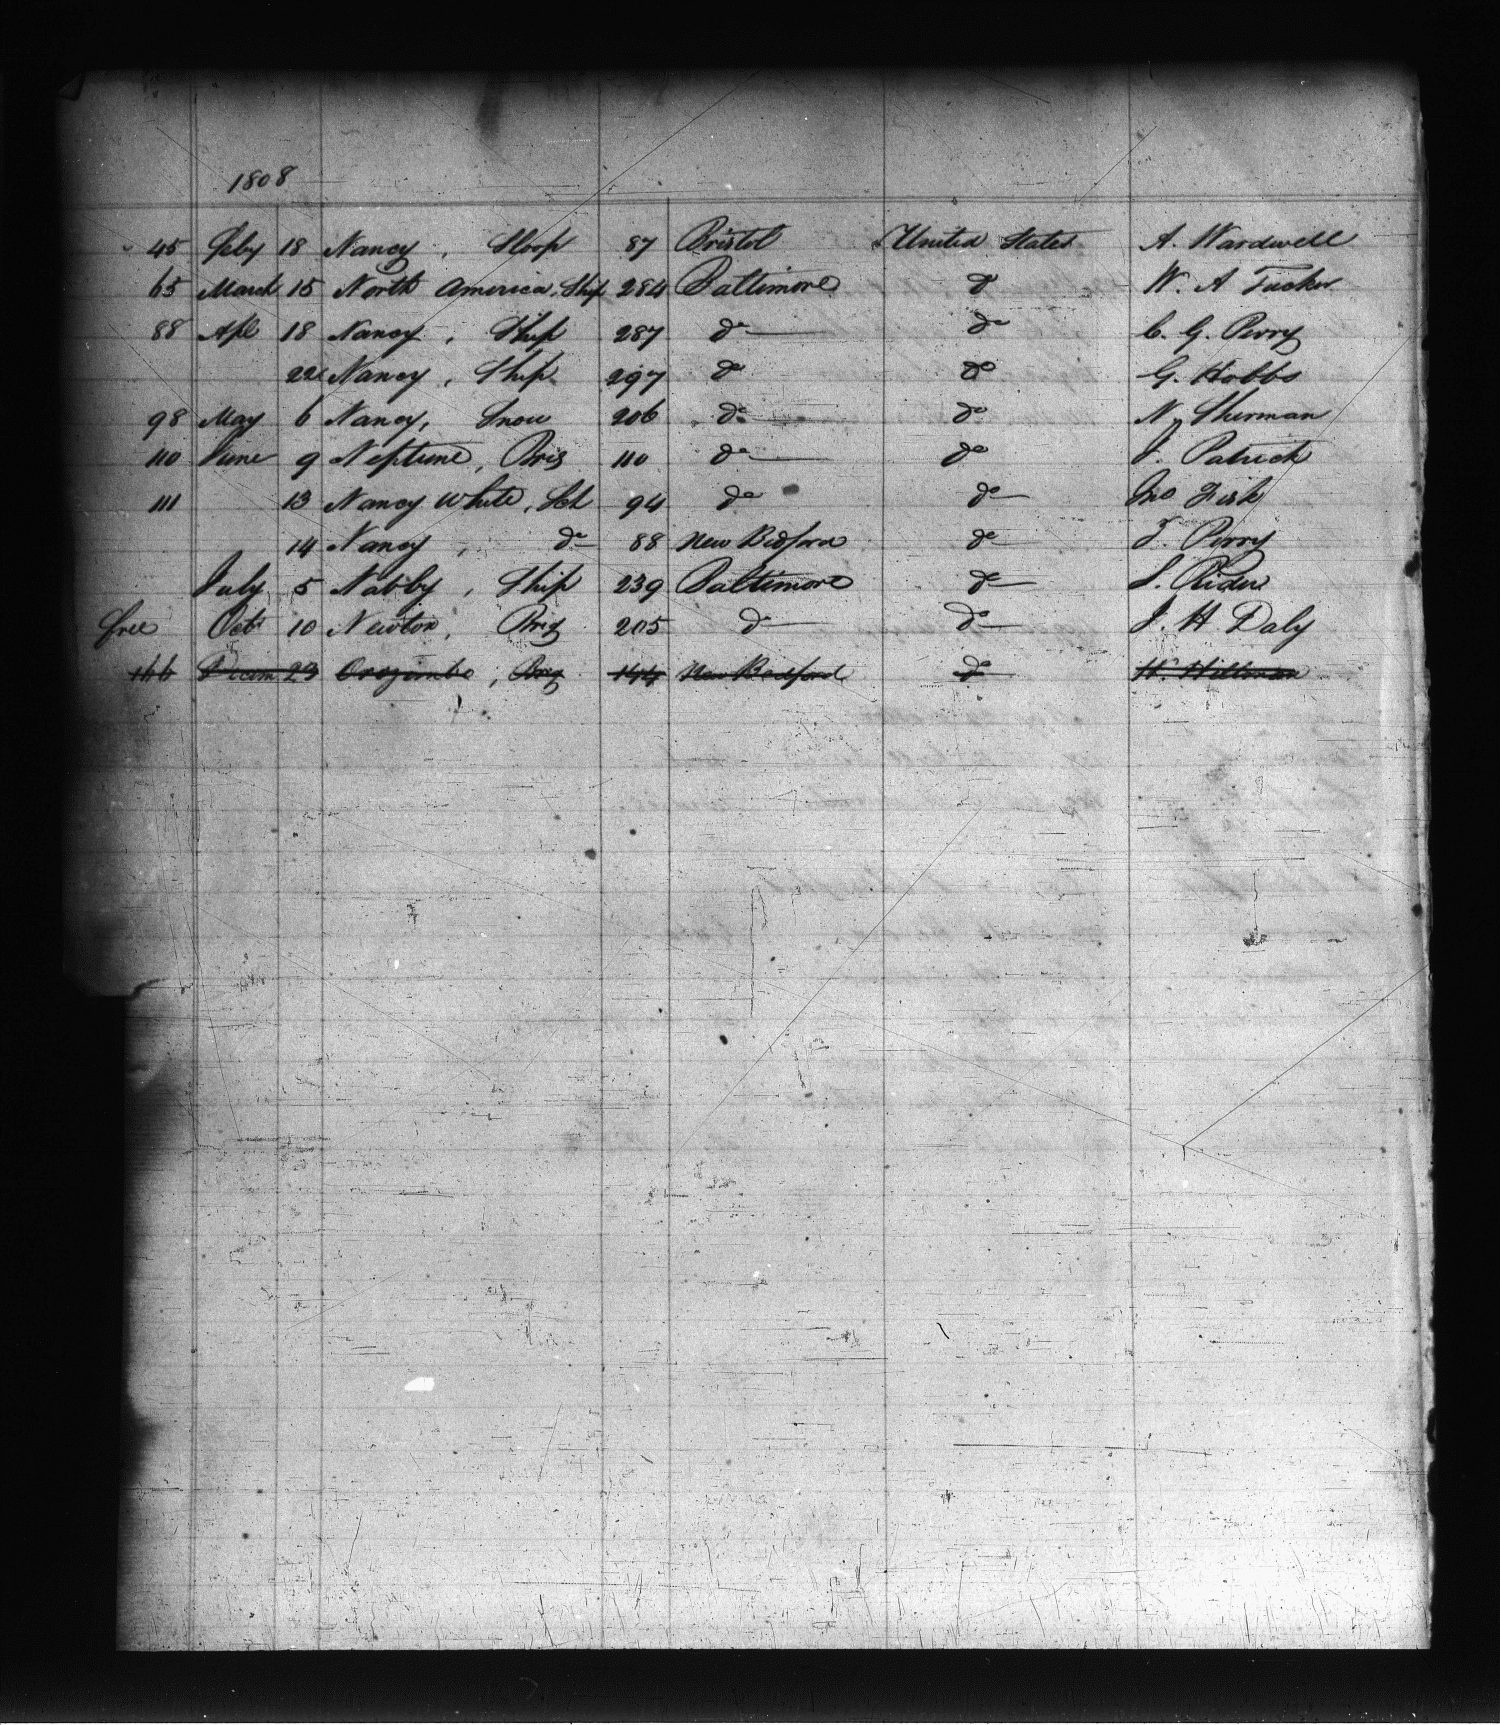 1808
45 Feby 18 Nancy, Sloop 87 Bristol United States A. Wardwell
65 March 15 North America, Ship 284 Baltimore do W. A Tucker
88 Apl 18 Nancy, Ship 287 do do C. G. Perry
22 Nancy, Ship 297 do do G. Hobbs
98 May 6 Nancy, Snow 206 do do N. Sherman
110 June 9 Neptune, Brig 110 do do J. Patrick
111 13 Nancy White, Sch 94 do do Jno Fisk
14 Nancy, do 88 New Bedford do T. Perry
July 5 Nabby, Ship 239 Baltimore do S. Rider
free Octr 10 Newton, Brig 205 do do J. H Daly
166 Decem 23 Orozimbo, Brig 144 New Bedford do H. Hillman